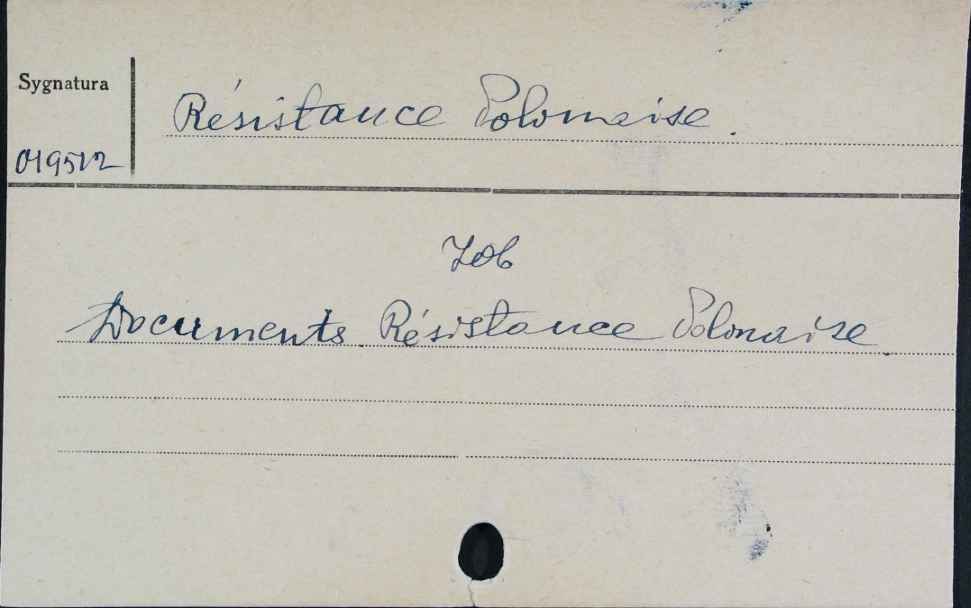 Sygnatura
Résistance Polonaise.
019512
Zob
Documents Résistance Polonaise.